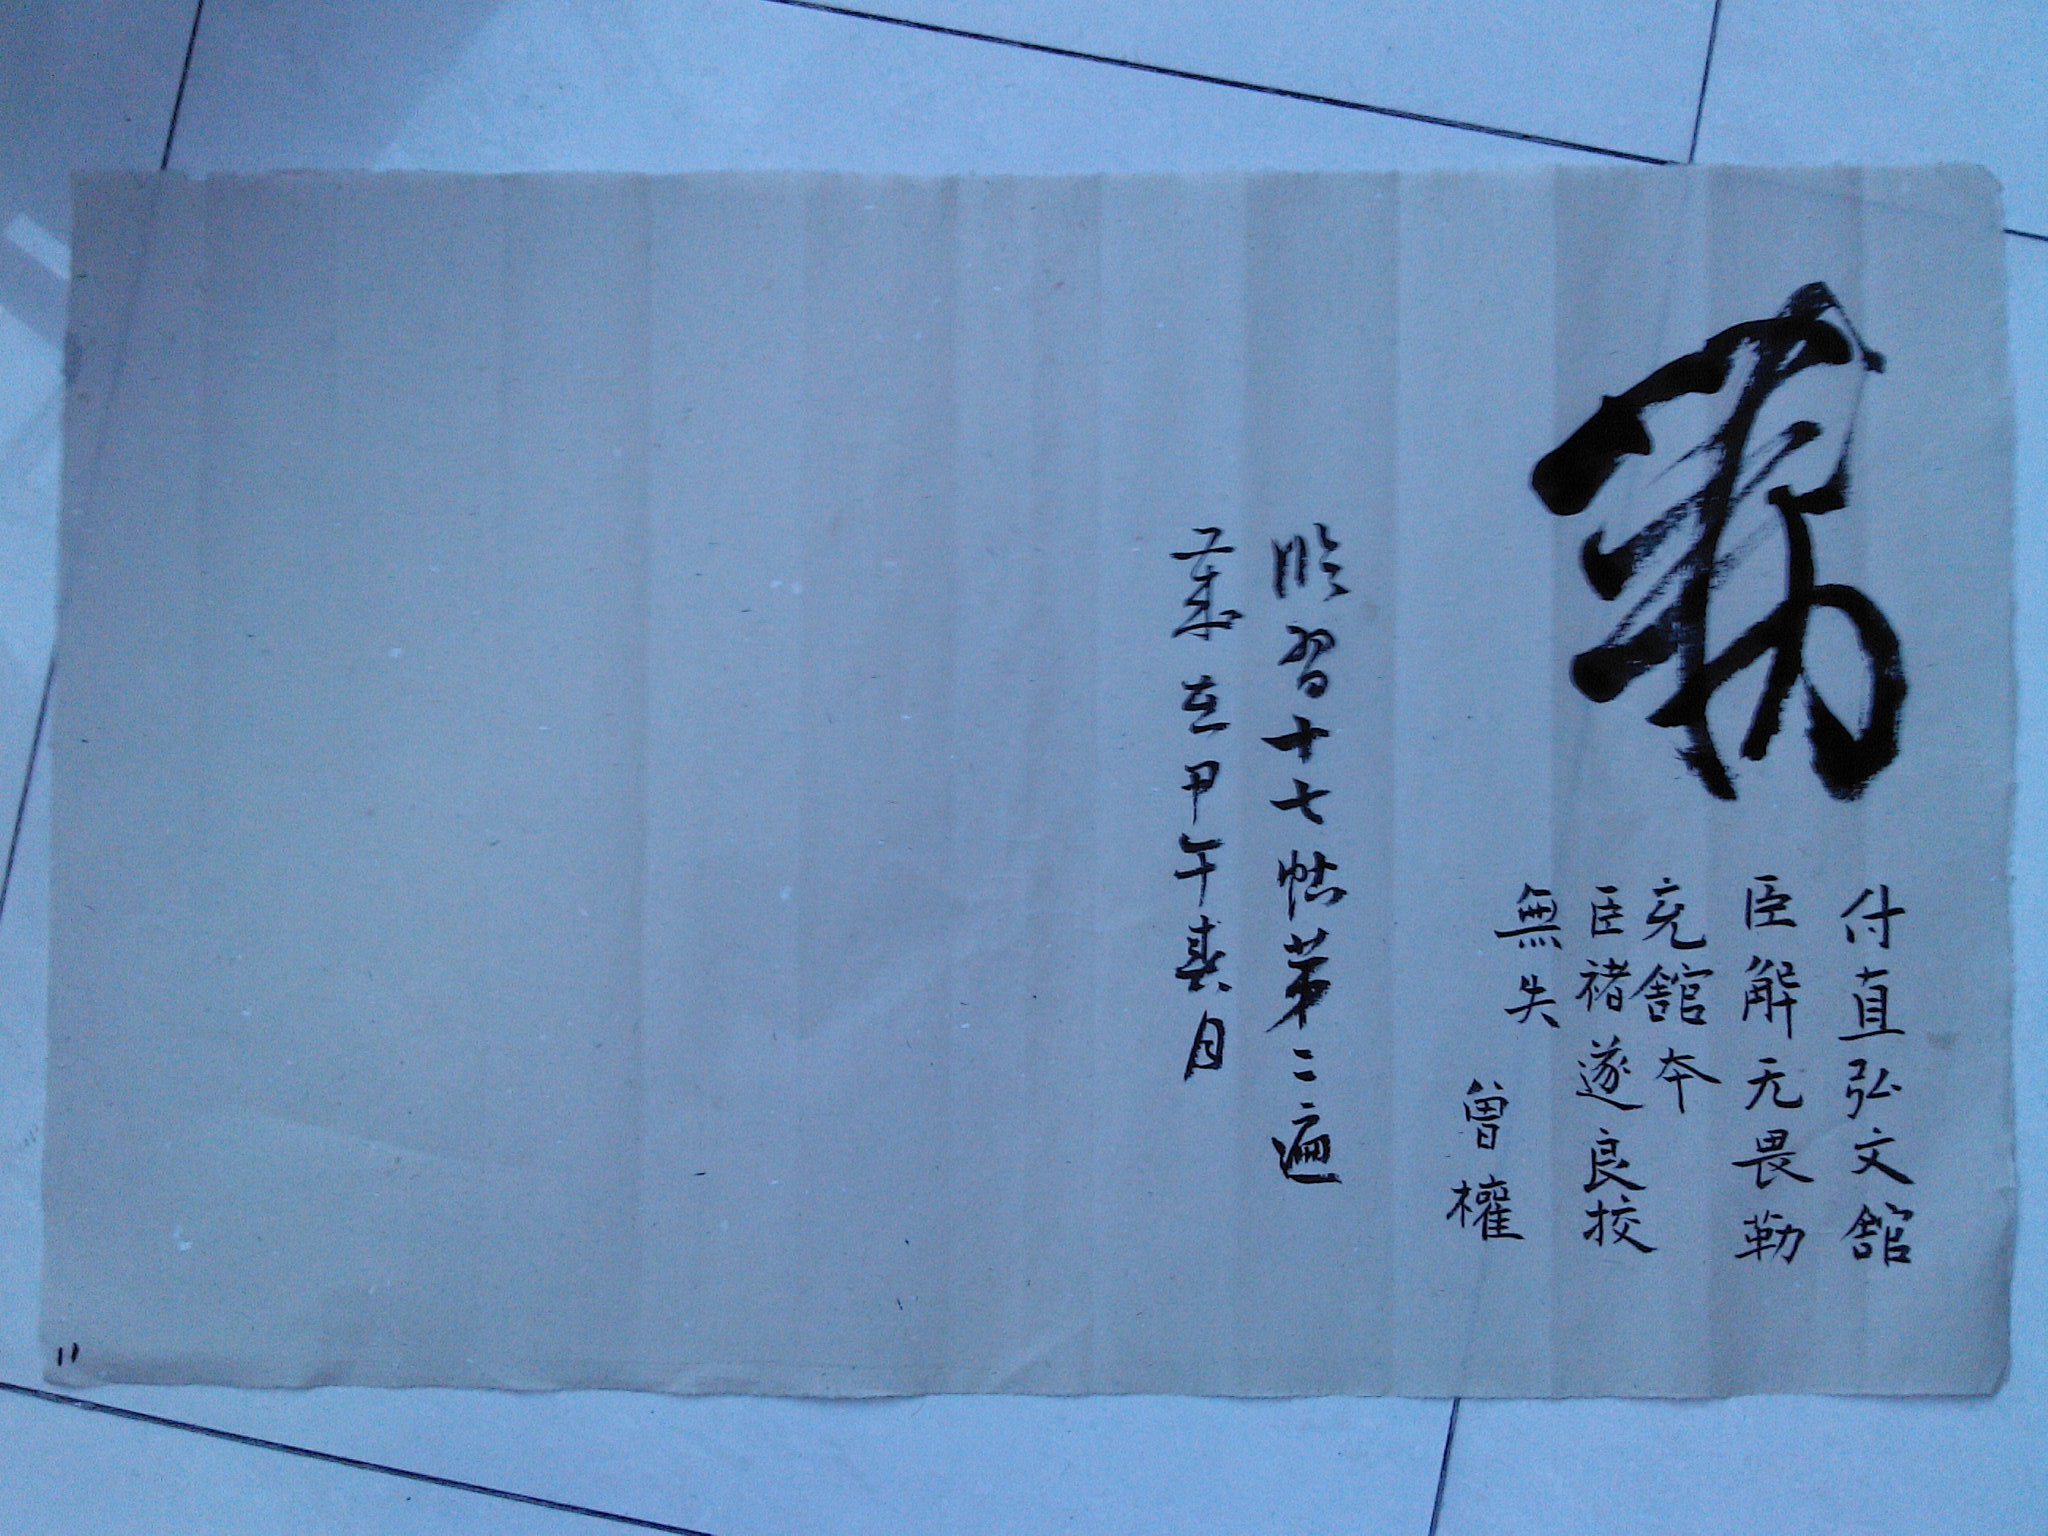 勅
付直弘文舘
臣解无畏勒
充舘本
臣褚遂良挍
無失
曾權
臨習十七帖第二遍
業在甲午春月
11